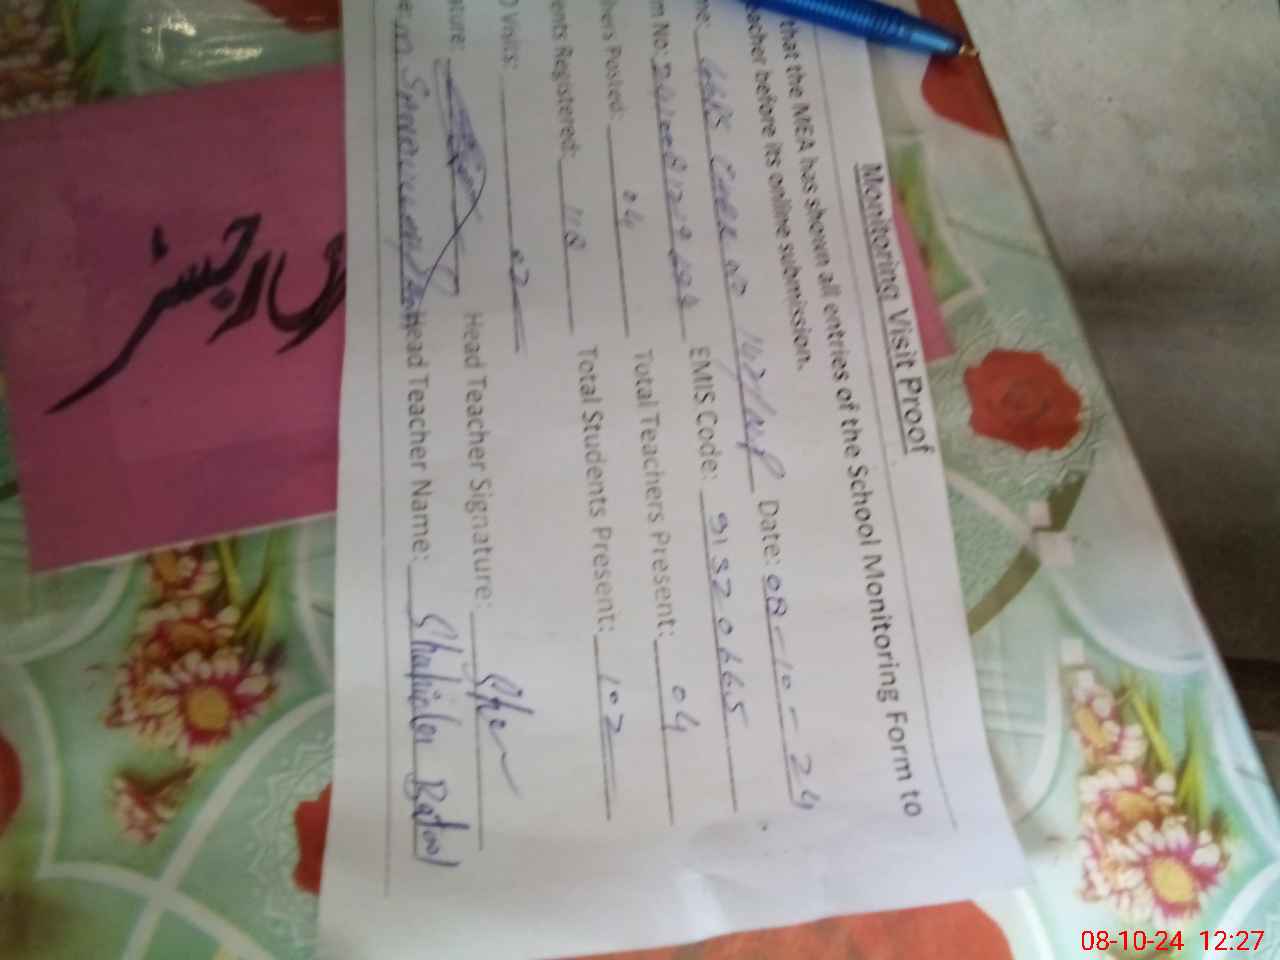 Monitoring Visit Proof
that the MEA has shown all entries of the School Monitoring Form to
acher before its online submission.
me: Date: 08-10-24
m No: EMIS Code: 91320665
hers Posted: 04 Total Teachers Present: 04
ents Registered: 118 Total Students Present: 102
Visits: 02
ature: Head Teacher Signature:
Head Teacher Name: Shahida Batool
رجسٹر
08-10-24 12:27